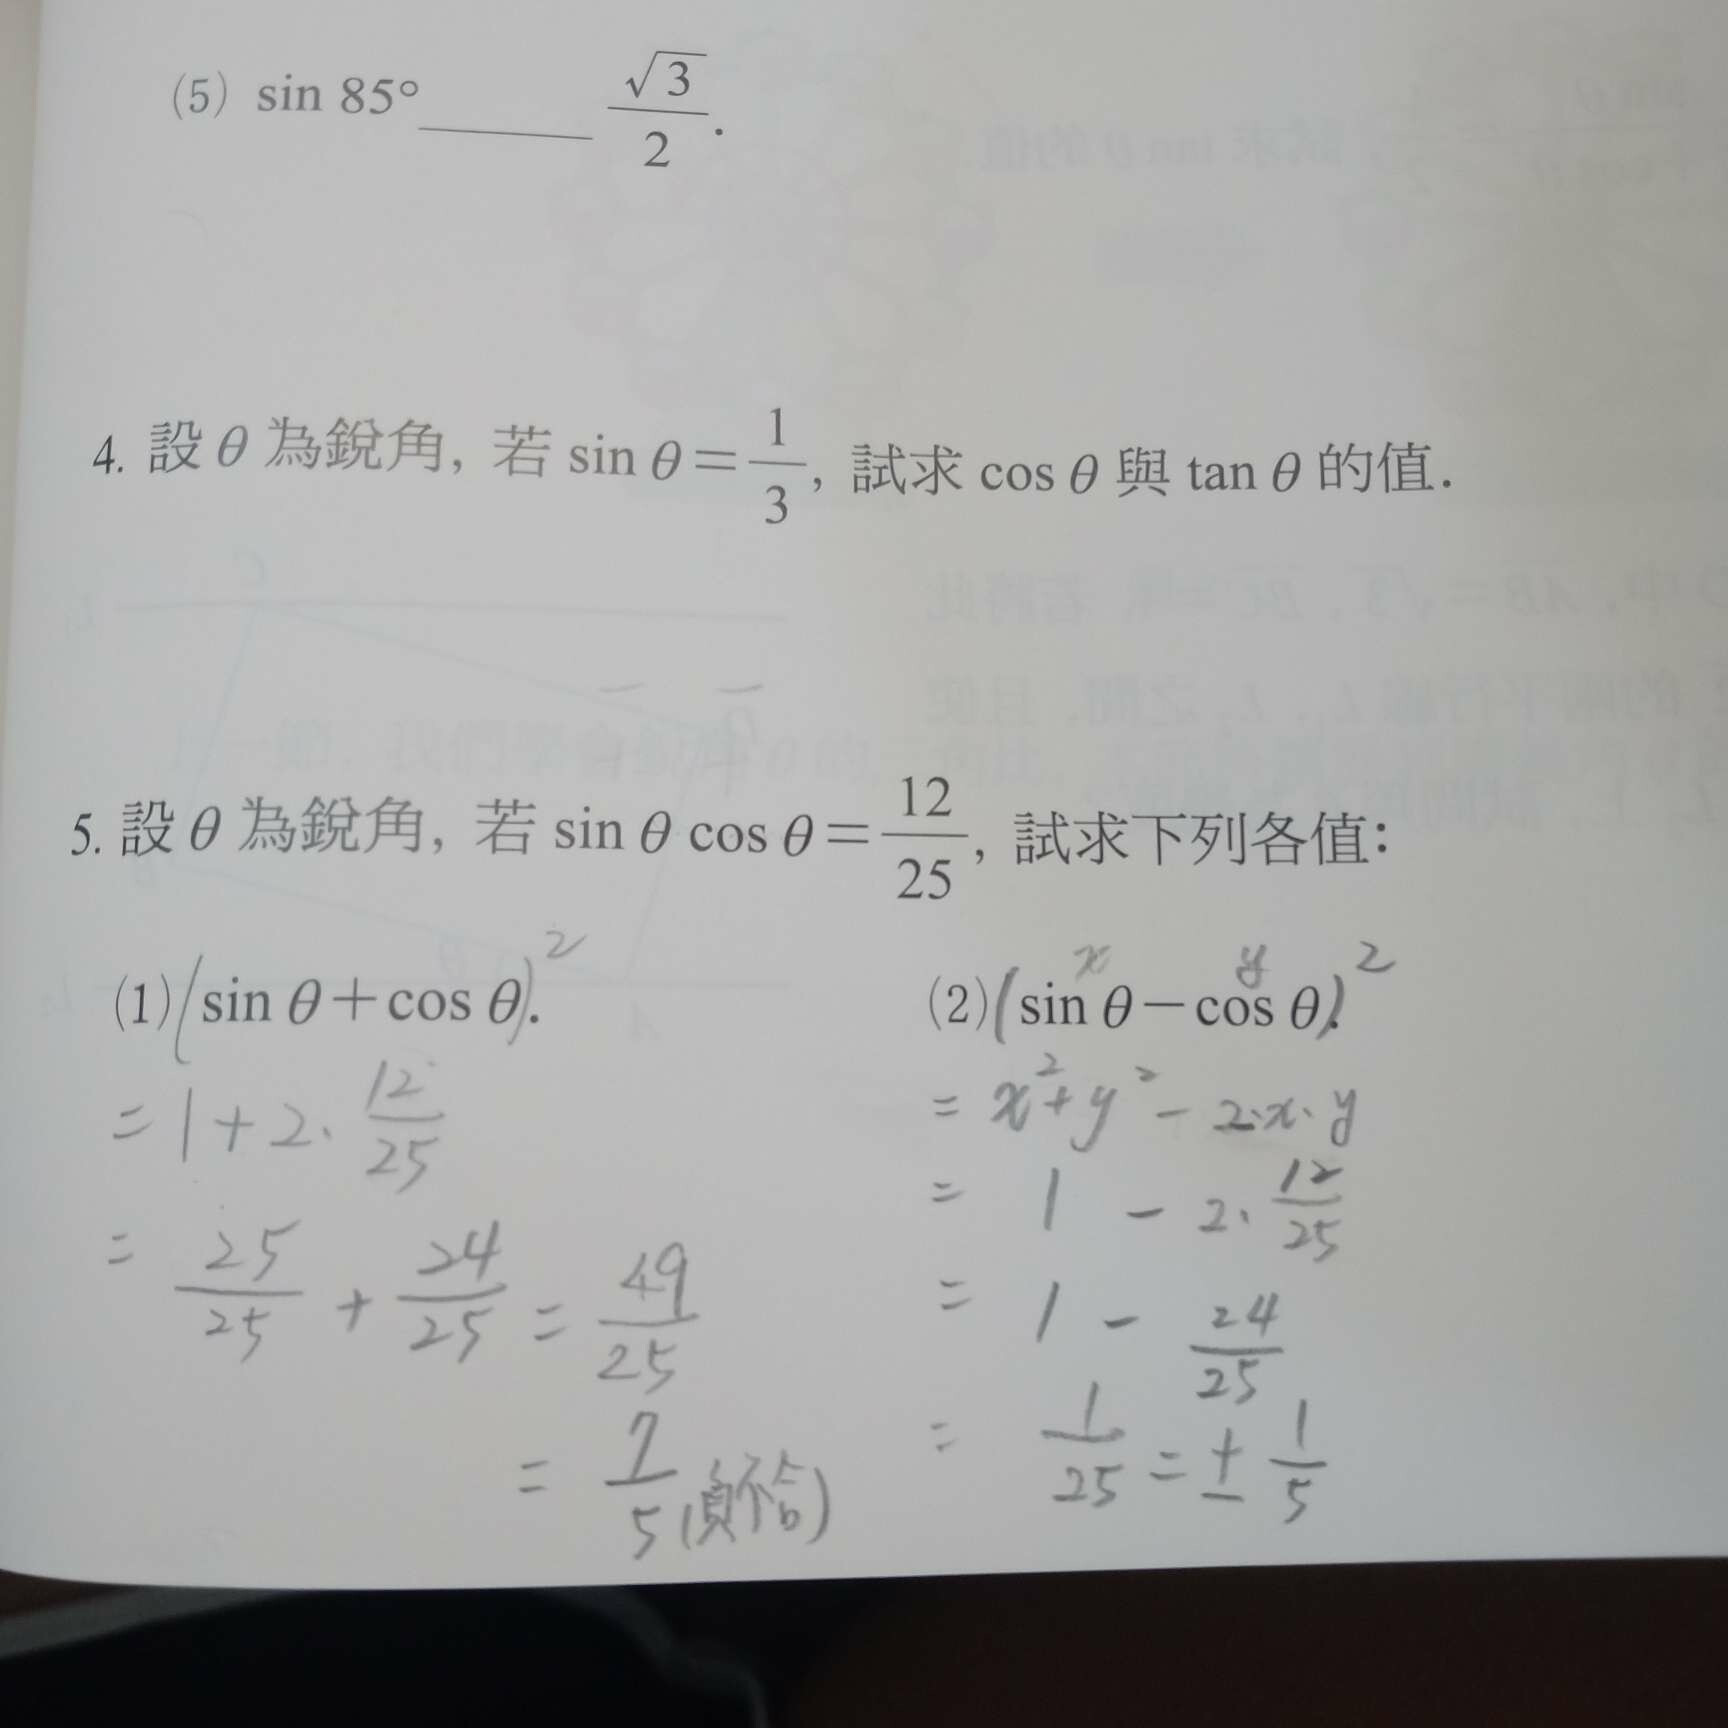 (5) sin 85° ______ √3/2 .
4. 設 θ 為銳角, 若 sin θ = 1/3, 試求 cos θ 與 tan θ 的值.
5. 設 θ 為銳角, 若 sin θ cos θ = 12/25, 試求下列各值:
(1) (sin θ + cos θ)².
= 1 + 2 · 12/25
= 25/25 + 24/25 = 49/25
= 7/5 (負不合)
x y
(2) (sin θ − cos θ)².
= x² + y² − 2·x·y
= 1 − 2 · 12/25
= 1 − 24/25
= 1/25 = ± 1/5